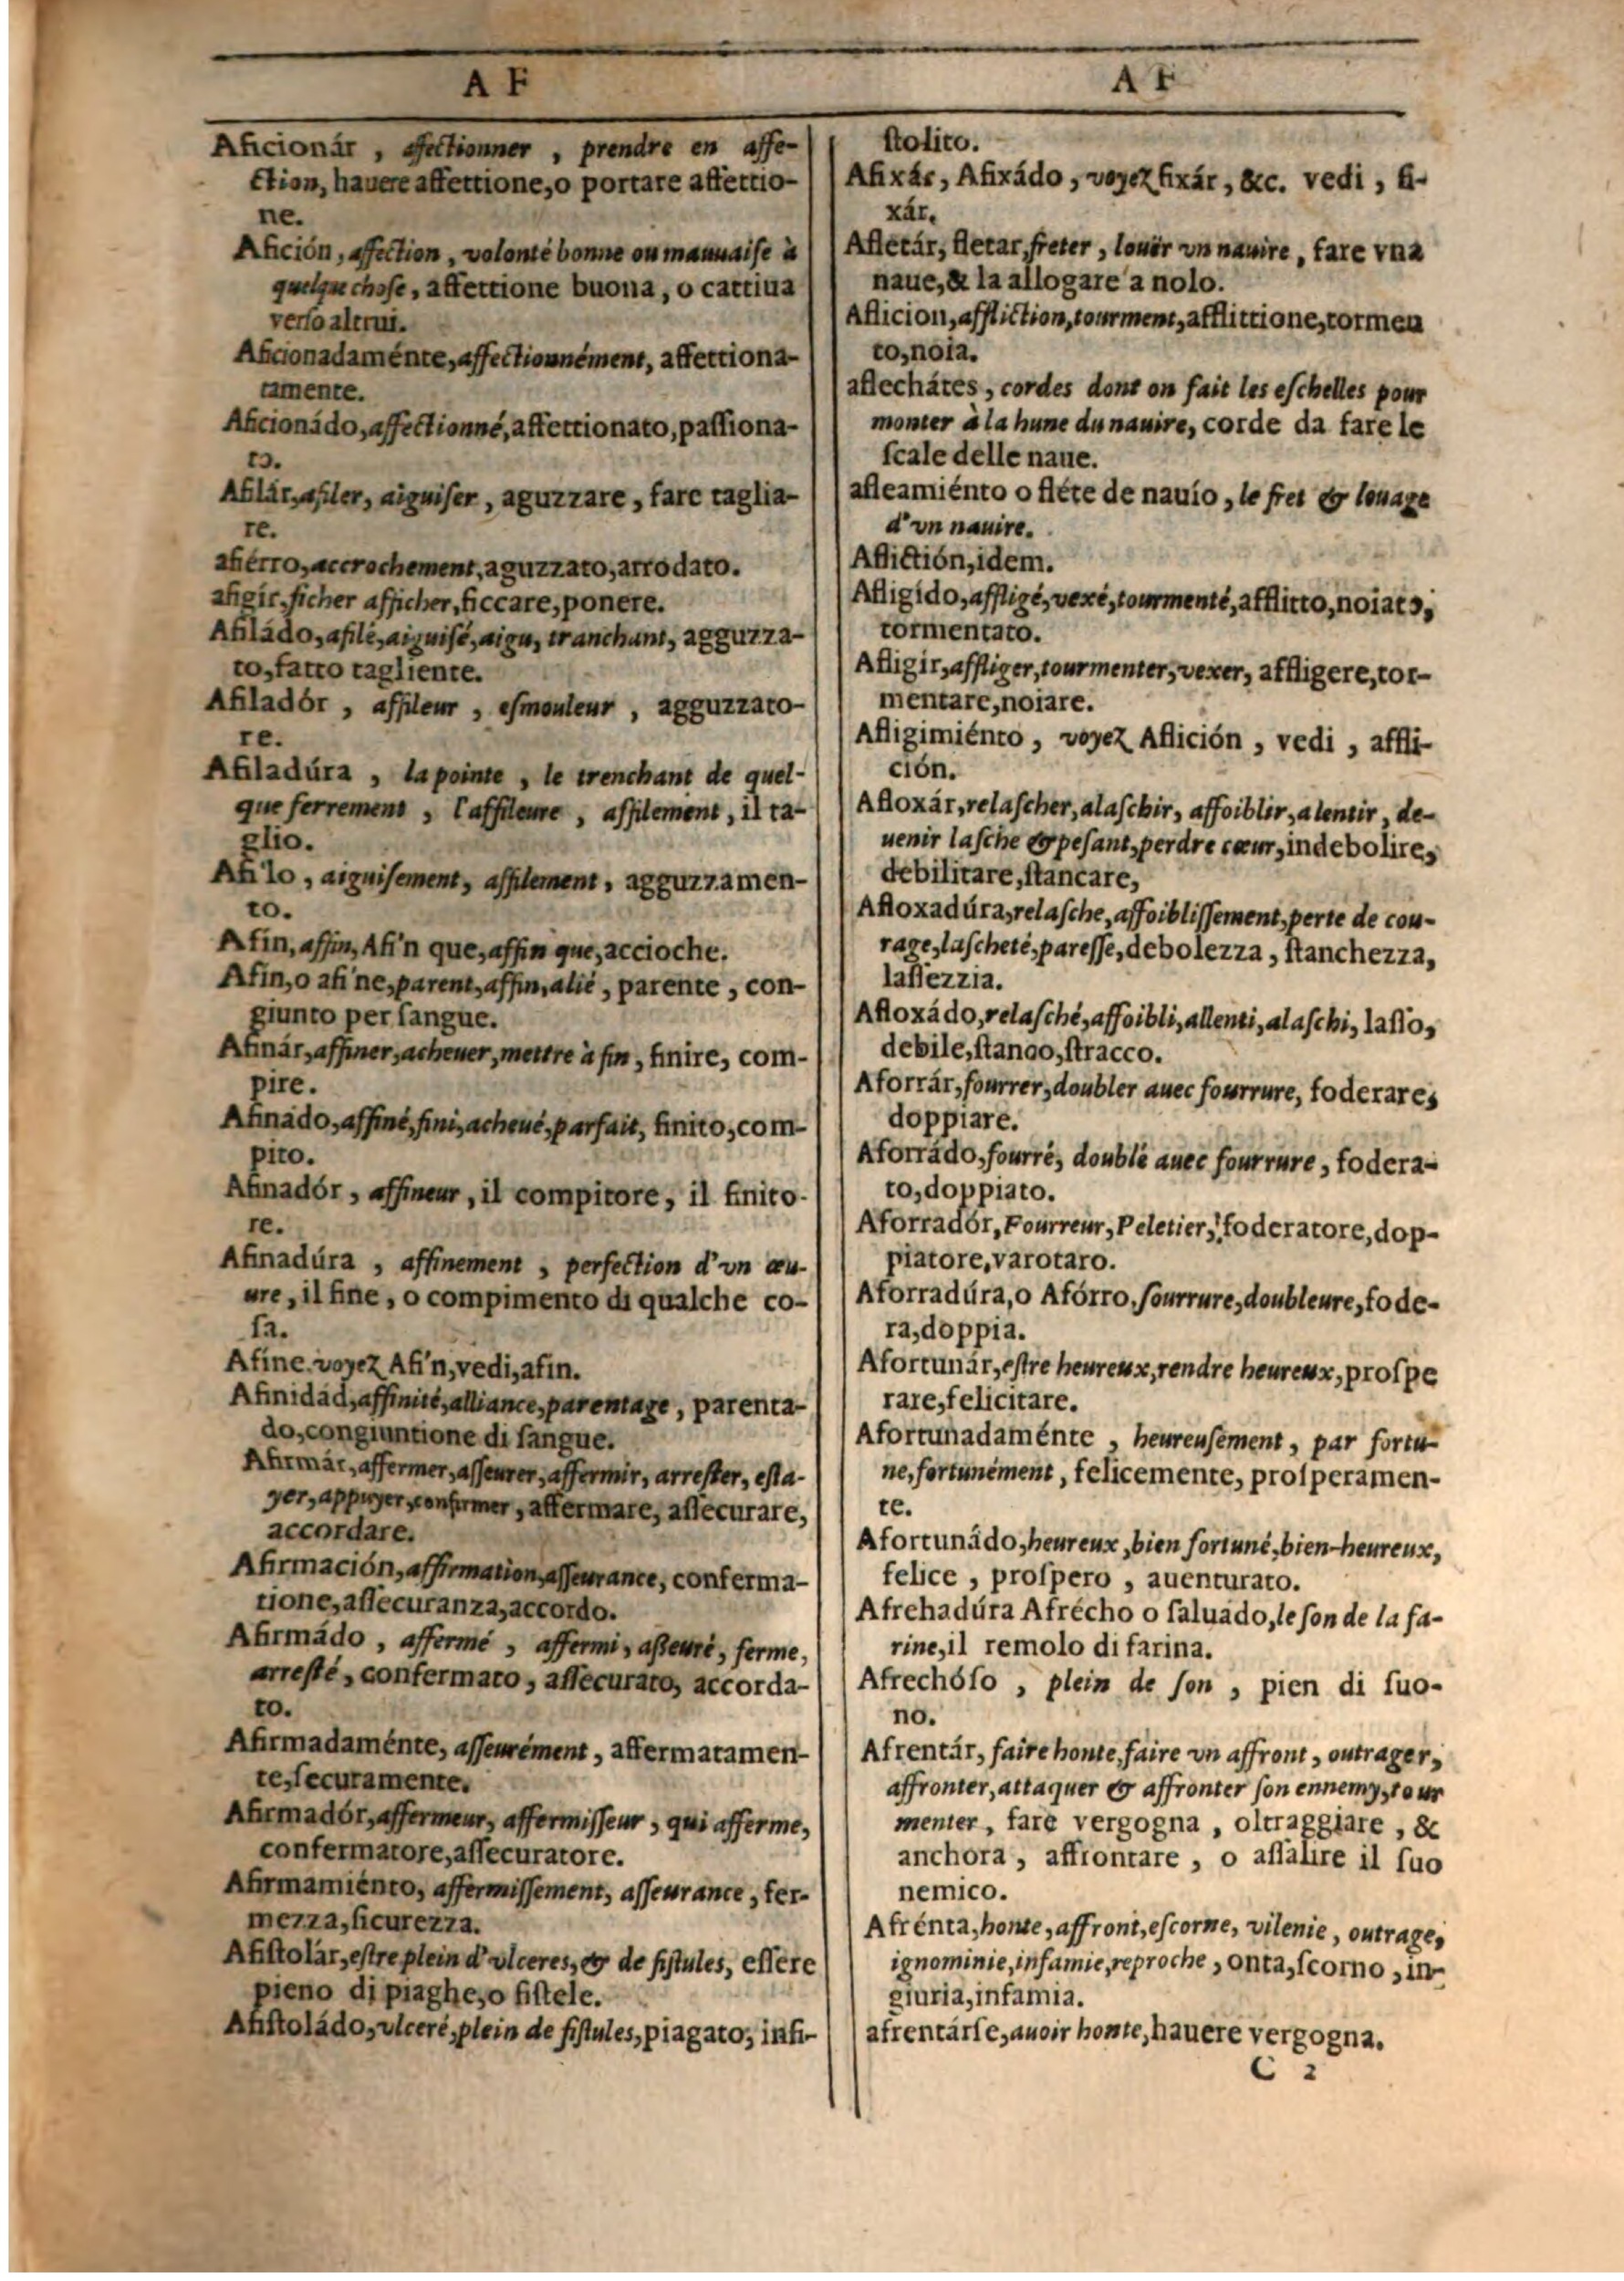 A F
Aficionár , affectionner , prendre en affe-
ction, hauere affettione,o portare affettio-
ne.
Afición, affection , volonté bonne ou mauuaiſe à
quelque choſe, affettione buona, o cattiua
verſo altrui.
Aficionadaménte, affectionnément, affettiona-
tamente.
Aficionádo, affectionné, affettionato, paſſiona-
to.
Afilár, afiler, aiguiſer , aguzzare , fare taglia-
re.
afiérro, accrochement, aguzzato, arrodato.
afigír, ficher afficher, ficcare, ponere.
Afiládo, afilé, aiguiſé, aigu, tranchant, agguzza-
to, fatto tagliente.
Afiladór , affileur , eſmouleur , agguzzato-
re.
Afiladúra , la pointe , le trenchant de quel-
que ferrement , l'affileure , affilement, il ta-
glio.
Afi'lo , aiguiſement, affilement, agguzzamen-
to.
Afin, affin, Afi'n que, affin que, accioche.
Afin, o afi'ne, parent, affin, alié , parente , con-
giunto per ſangue.
Afinár, affiner, acheuer, mettre à fin, finire, com-
pire.
Afinádo, affiné, fini, acheué, parfait, finito, com-
pito.
Afinadór , affineur , il compitore, il finito-
re.
Afinadúra , affinement , perfection d'vn œu-
ure, il fine , o compimento di qualche co-
ſa.
Afine voyez Afi'n, vedi, afin.
Afinidád, affinité, alliance, parentage , parenta-
do, congiuntione di ſangue.
Afirmár, affermer, aſſeurer, affermir, arreſter, eſta-
yer, appuyer, confirmer , affermare, aſſecurare,
accordare.
Afirmación, affirmation, aſſeurance, conferma-
tione, aſſecuranza, accordo.
Afirmádo , affermé , affermi, aſſeuré, ferme,
arreſté , confermato , aſſecurato, accorda-
to.
Afirmadaménte, aſſeurément , affermatamen-
te, ſecuramente.
Afirmadór, affermeur, affermiſſeur , qui afferme,
confermatore, aſſecuratore.
Afirmamiénto, affermiſſement, aſſeurance , fer-
mezza, ſicurezza.
Afiſtolár, eſtre plein d'vlceres, & de fiſtules, eſſere
pieno di piaghe, o fiſtele.
Afiſtoládo, vlceré, plein de fiſtules, piagato, infi-
A F
ſtolito.
Afixár, Afixádo, voyez fixár, &c. vedi , fi-
xár.
Afletár, fletar, freter , louër vn nauire, fare vna
naue, & la allogare a nolo.
Aflicion, affliction, tourment, afflittione, tormen
to, noia.
aflechátes , cordes dont on fait les eſchelles pour
monter à la hune du nauire, corde da fare le
ſcale delle naue.
afleamiénto o fléte de nauío , le fret & louage
d'vn nauire.
Aflictión, idem.
Afligído, affligé, vexé, tourmenté, afflitto, noiato,
tormentato.
Afligir, affliger, tourmenter, vexer, affligere, tor-
mentare, noiare.
Afligimiénto , voyez Aflición , vedi , affli-
ción.
Afloxár, relaſcher, alaſchir, affoiblir, alentir , de-
uenir laſche & peſant, perdre cœur, indebolire,
debilitare, ſtancare,
Afloxadúra, relaſche, affoibliſſement, perte de cou-
rage, laſcheté, pareſſe, debolezza , ſtanchezza,
laſſezzia.
Afloxádo, relaſché, affoibli, allenti, alaſchi, laſſo,
debile, ſtanco, ſtracco.
Aforrár, fourrer, doubler auec fourrure, foderare,
doppiare.
Aforrádo, fourré, doublé auec fourrure , fodera-
to, doppiato.
Aforradór, Fourreur, Peletier, foderatore, dop-
piatore, varotaro.
Aforradúra, o Afórro, fourrure, doubleure, fode-
ra, doppia.
Afortunár, eſtre heureux, rendre heureux, proſpe
rare, felicitare.
Afortunadaménte , heureuſement , par fortu-
ne, fortunément , felicemente, proſperamen-
te.
Afortunádo, heureux, bien fortuné, bien-heureux,
felice , proſpero , auenturato.
Afrehadúra Afrécho o ſaluado, le ſon de la fa-
rine, il remolo di farina.
Afrechóſo , plein de ſon , pien di ſuo-
no.
Afrentár, faire honte, faire vn affront , outrager,
affronter, attaquer & affronter ſon ennemy, tour
menter , fare vergogna , oltraggiare , &
anchora , affrontare , o aſſalire il ſuo
nemico.
Afrénta, honte, affront, eſcorne, vilenie , outrage,
ignominie, infamie, reproche , onta, ſcorno , in-
giuria, infamia.
afrentárſe, auoir honte, hauere vergogna.
C 2